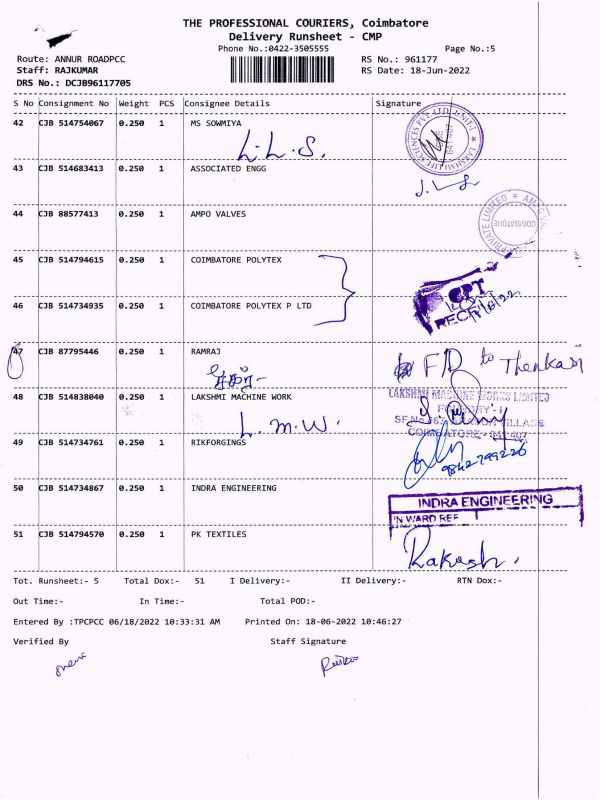 THE PROFESSIONAL COURIERS, Coimbatore
Delivery Runsheet - CMP
Phone No.:0422-3505555 Page No.:5
Route: ANNUR ROADPCC RS No.: 961177
Staff: RAJKUMAR RS Date: 18-Jun-2022
DRS No.: DCJB96117705
S No Consignment No Weight PCS Consignee Details Signature
42 CJB 514754067 0.250 1 MS SOWMIYA
L.L.S.
43 CJB 514683413 0.250 1 ASSOCIATED ENGG
44 CJB 88577413 0.250 1 AMPO VALVES
COIMBATORE
45 CJB 514794615 0.250 1 COIMBATORE POLYTEX
CPT
46 CJB 514734935 0.250 1 COIMBATORE POLYTEX P LTD
47 CJB 87795446 0.250 1 RAMRAJ
FD to Thenkasi
48 CJB 514838040 0.250 1 LAKSHMI MACHINE WORK
LAKSHMI MACHINE WORKS LIMITED
L.M.W.
COIMBATORE - 641407
49 CJB 514734761 0.250 1 RIKFORGINGS
9842799226
50 CJB 514734867 0.250 1 INDRA ENGINEERING
INDRA ENGINEERING
INWARD REF
51 CJB 514794570 0.250 1 PK TEXTILES
Rakash.
Tot. Runsheet:- 5 Total Dox:- 51 I Delivery:- II Delivery:- RTN Dox:-
Out Time:- In Time:- Total POD:-
Entered By :TPCPCC 06/18/2022 10:33:31 AM Printed On: 18-06-2022 10:46:27
Verified By Staff Signature